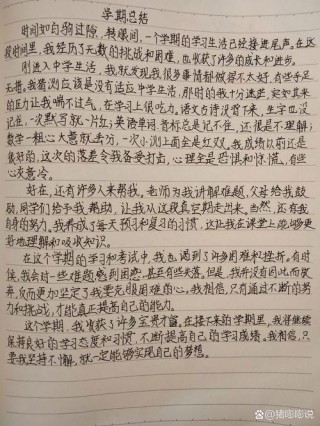 学期总结
时间如白驹过隙，转眼间，一个学期的学习生活已经接进尾声。在这
段时间里，我经历了无数的挑战和困难，也收获了许多的成长和进步。
刚进入中学生活，我就发现我很多事情都做得不太好，有些手足
无措。我猜测应该是没有适应中学生活，那时的我十分迷茫，突如其来
的压力让我喘不过气，在学习上很吃力。语文古诗没背下来，生字也没
记住，一次默写就一片红；英语单词、音标总是记不住，还很是不理解；
数学一粗心大意就丢分，一次小测上面全是红叉。我成绩以前还是
很好的，这次的落差令我备受打击，心理全是恐惧和惊慌，有些
心灰意冷。
好在，还有许多人来帮我。老师为我讲解难题，父母给我鼓
励，同学们给予我帮助，让我从这段真空期走出来。当然，还有我
自身的努力。我养成了每天预习和复习的习惯，这让我在课堂上能够更
好地理解和吸收知识。
在这个学期的学习和考试中，我也遇到了许多困难和挫折。有时
候，我会对一些难题感到困惑，甚至有些失落。但是，我并没有因此而放
弃，反而更加坚定了我要克服困难的心。我相信，只有通过不断的努
力和挑战，才能真正提高自己的能力。
这个学期，我收获了许多宝贵才富。在接下来的学期里，我将继续
保持良好的学习态度和习惯，不断提高自己的学习成绩。我相信，只
要我坚持不懈，就一定能够实现自己的梦想。
@猪嘭嘭说